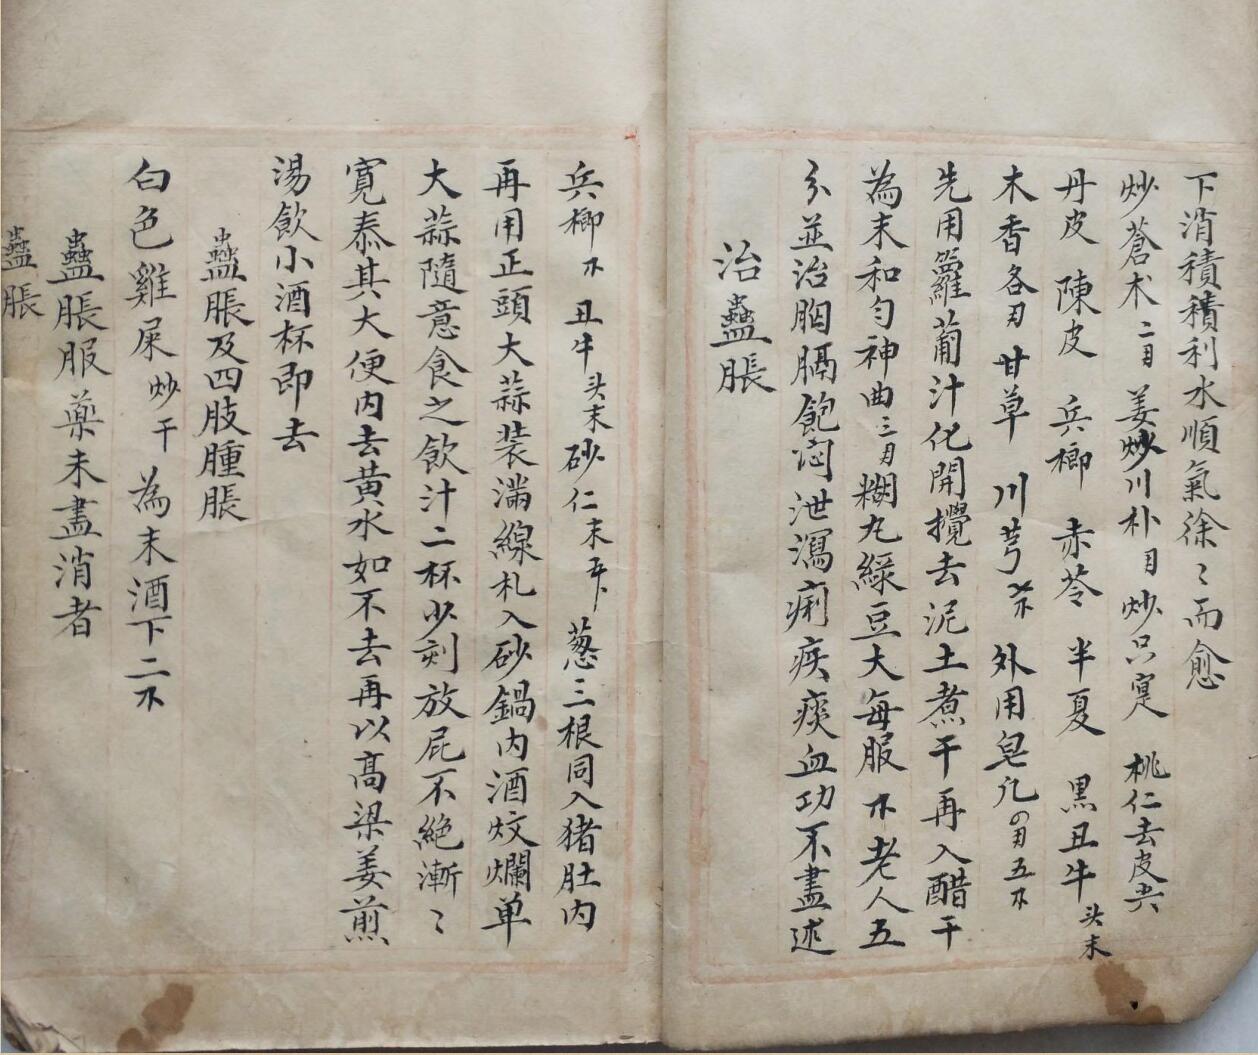 下消積積利水順氣徐〻而愈
炒蒼术二刄姜炒川朴刄炒只寔 桃仁去皮尖
丹皮 陳皮 兵榔 赤苓 半夏 黒丑牛头末
木香各刄甘草 川芎 外用皂九四刄五
先用籮葡汁化開攪去泥土煮干再入醋干
為末和勻神曲三刄糊丸綠豆大每服 老人五
分並治胸膈飽悶泄瀉痢疾痰血功不盡述
治蠱脹
兵榔 丑牛头末砂仁末五 葱三根同入猪肚内
再用正頭大蒜装滿線札入砂鍋内酒炆爛单
大蒜隨意食之飲汁二杯少刻放屁不絶漸〻
寛泰其大便内去黄水如不去再以高梁姜煎
湯飲小酒杯即去
蠱脹及四肢腫脹
白色雞屎炒干為末酒下二
蠱脹服藥未盡消者
蠱脹